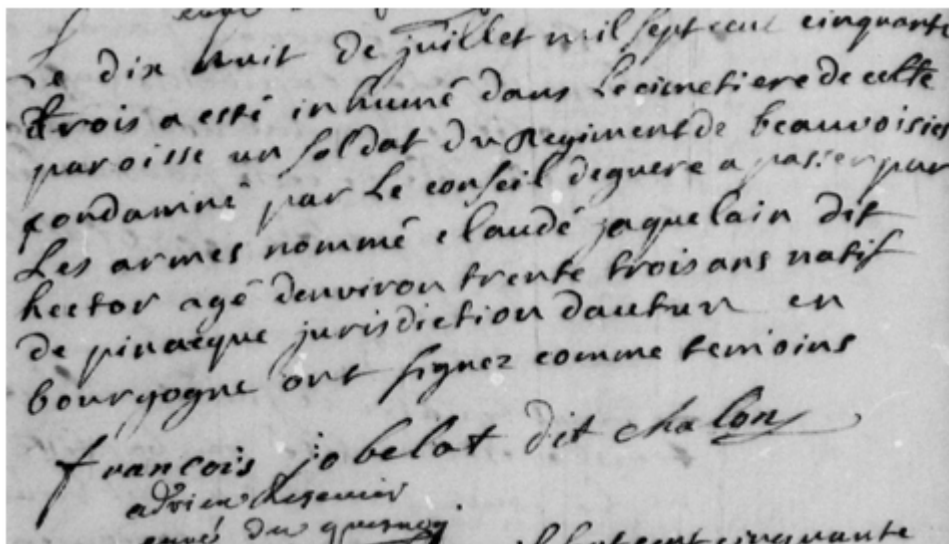 Le dix huit de juillet mil sept cent cinquante
trois a esté inhumé dans le cimetiere de cette
paroisse un soldat du Regiment de beauvoisies
condamné par le conseil deguere a passer par
les armes nommé claudé jaquelain dit
hector agé denviron trente trois ans natif
de pinacque jurisdiction dautun en
bourgogne ont signez comme temoins
françois jobelot dit chalon
adrien
curé du quesnoy
sept cent cinquante